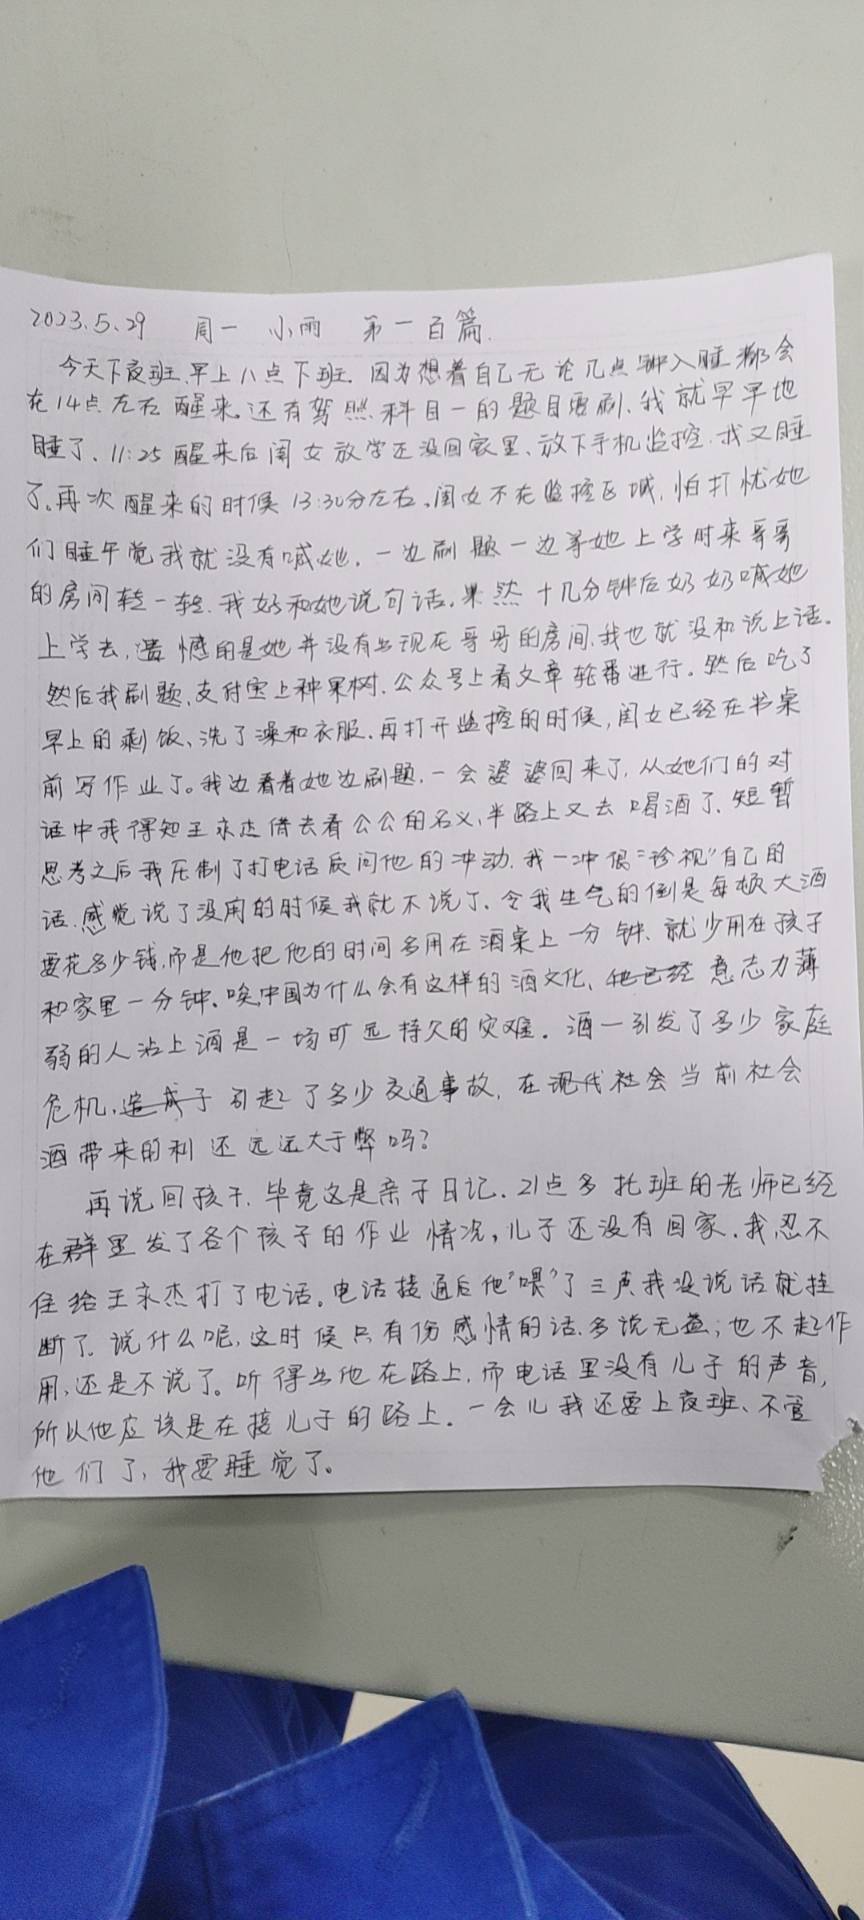 2023.5.29 周一 小雨 第一百篇.
今天下夜班,早上八点下班. 因为想着自己无论几点钟入睡都会
在14点左右醒来.还有驾照科目一的题目要刷.我就早早地
睡了、11:25醒来后闺女放学还没回家里、放下手机监控.我又睡
了.再次醒来的时候13:30分左右.闺女不在监控区域,怕打忧她
们睡午觉我就没有喊她. 一边刷题一边等她上学时来哥哥
的房间转一转.我好和她说句话.果然十几分钟后奶奶喊她
上学去,遗憾的是她并没有出现在哥哥的房间.我也就没和说上话.
然后我刷题、支付宝上种果树.公众号上看文章轮番进行.然后吃了
早上的剩饭、洗了澡和衣服.再打开监控的时候,闺女已经在书桌
前写作业了。我边看着她边刷题.一会婆婆回来了,从她们的对
话中我得知王永杰借去看公公的名义,半路上又去喝酒了、短暂
思考之后我压制了打电话质问他的冲动.我一冲偶"珍视"自己的
话.感觉说了没用的时候我就不说了.令我生气的倒是每顿大酒
要花多少钱,而是他把他的时间多用在酒桌上一分钟、就少用在孩子
和家里一分钟.唉,中国为什么会有这样的酒文化、他已经 意志力薄
弱的人沾上酒是一场旷远持久的灾难. 酒一引发了多少家庭
危机,造成了 引起了多少交通事故, 在现代社会当前社会
酒带来的利还远远大于弊吗?
再说回孩子.毕竟这是亲子日记.21点多托班的老师已经
在群里发了各个孩子的作业情况,儿子还没有回家.我忍不
住给王永杰打了电话。电话接通后他"喂"了三声我没说话就挂
断了.说什么呢,这时候只有伤感情的话.多说无益;也不起作
用,还是不说了。听得出他在路上,而电话里没有儿子的声音,
所以他应该是在接儿子的路上. 一会儿我还要上夜班、不管
他们了,我要睡觉了。